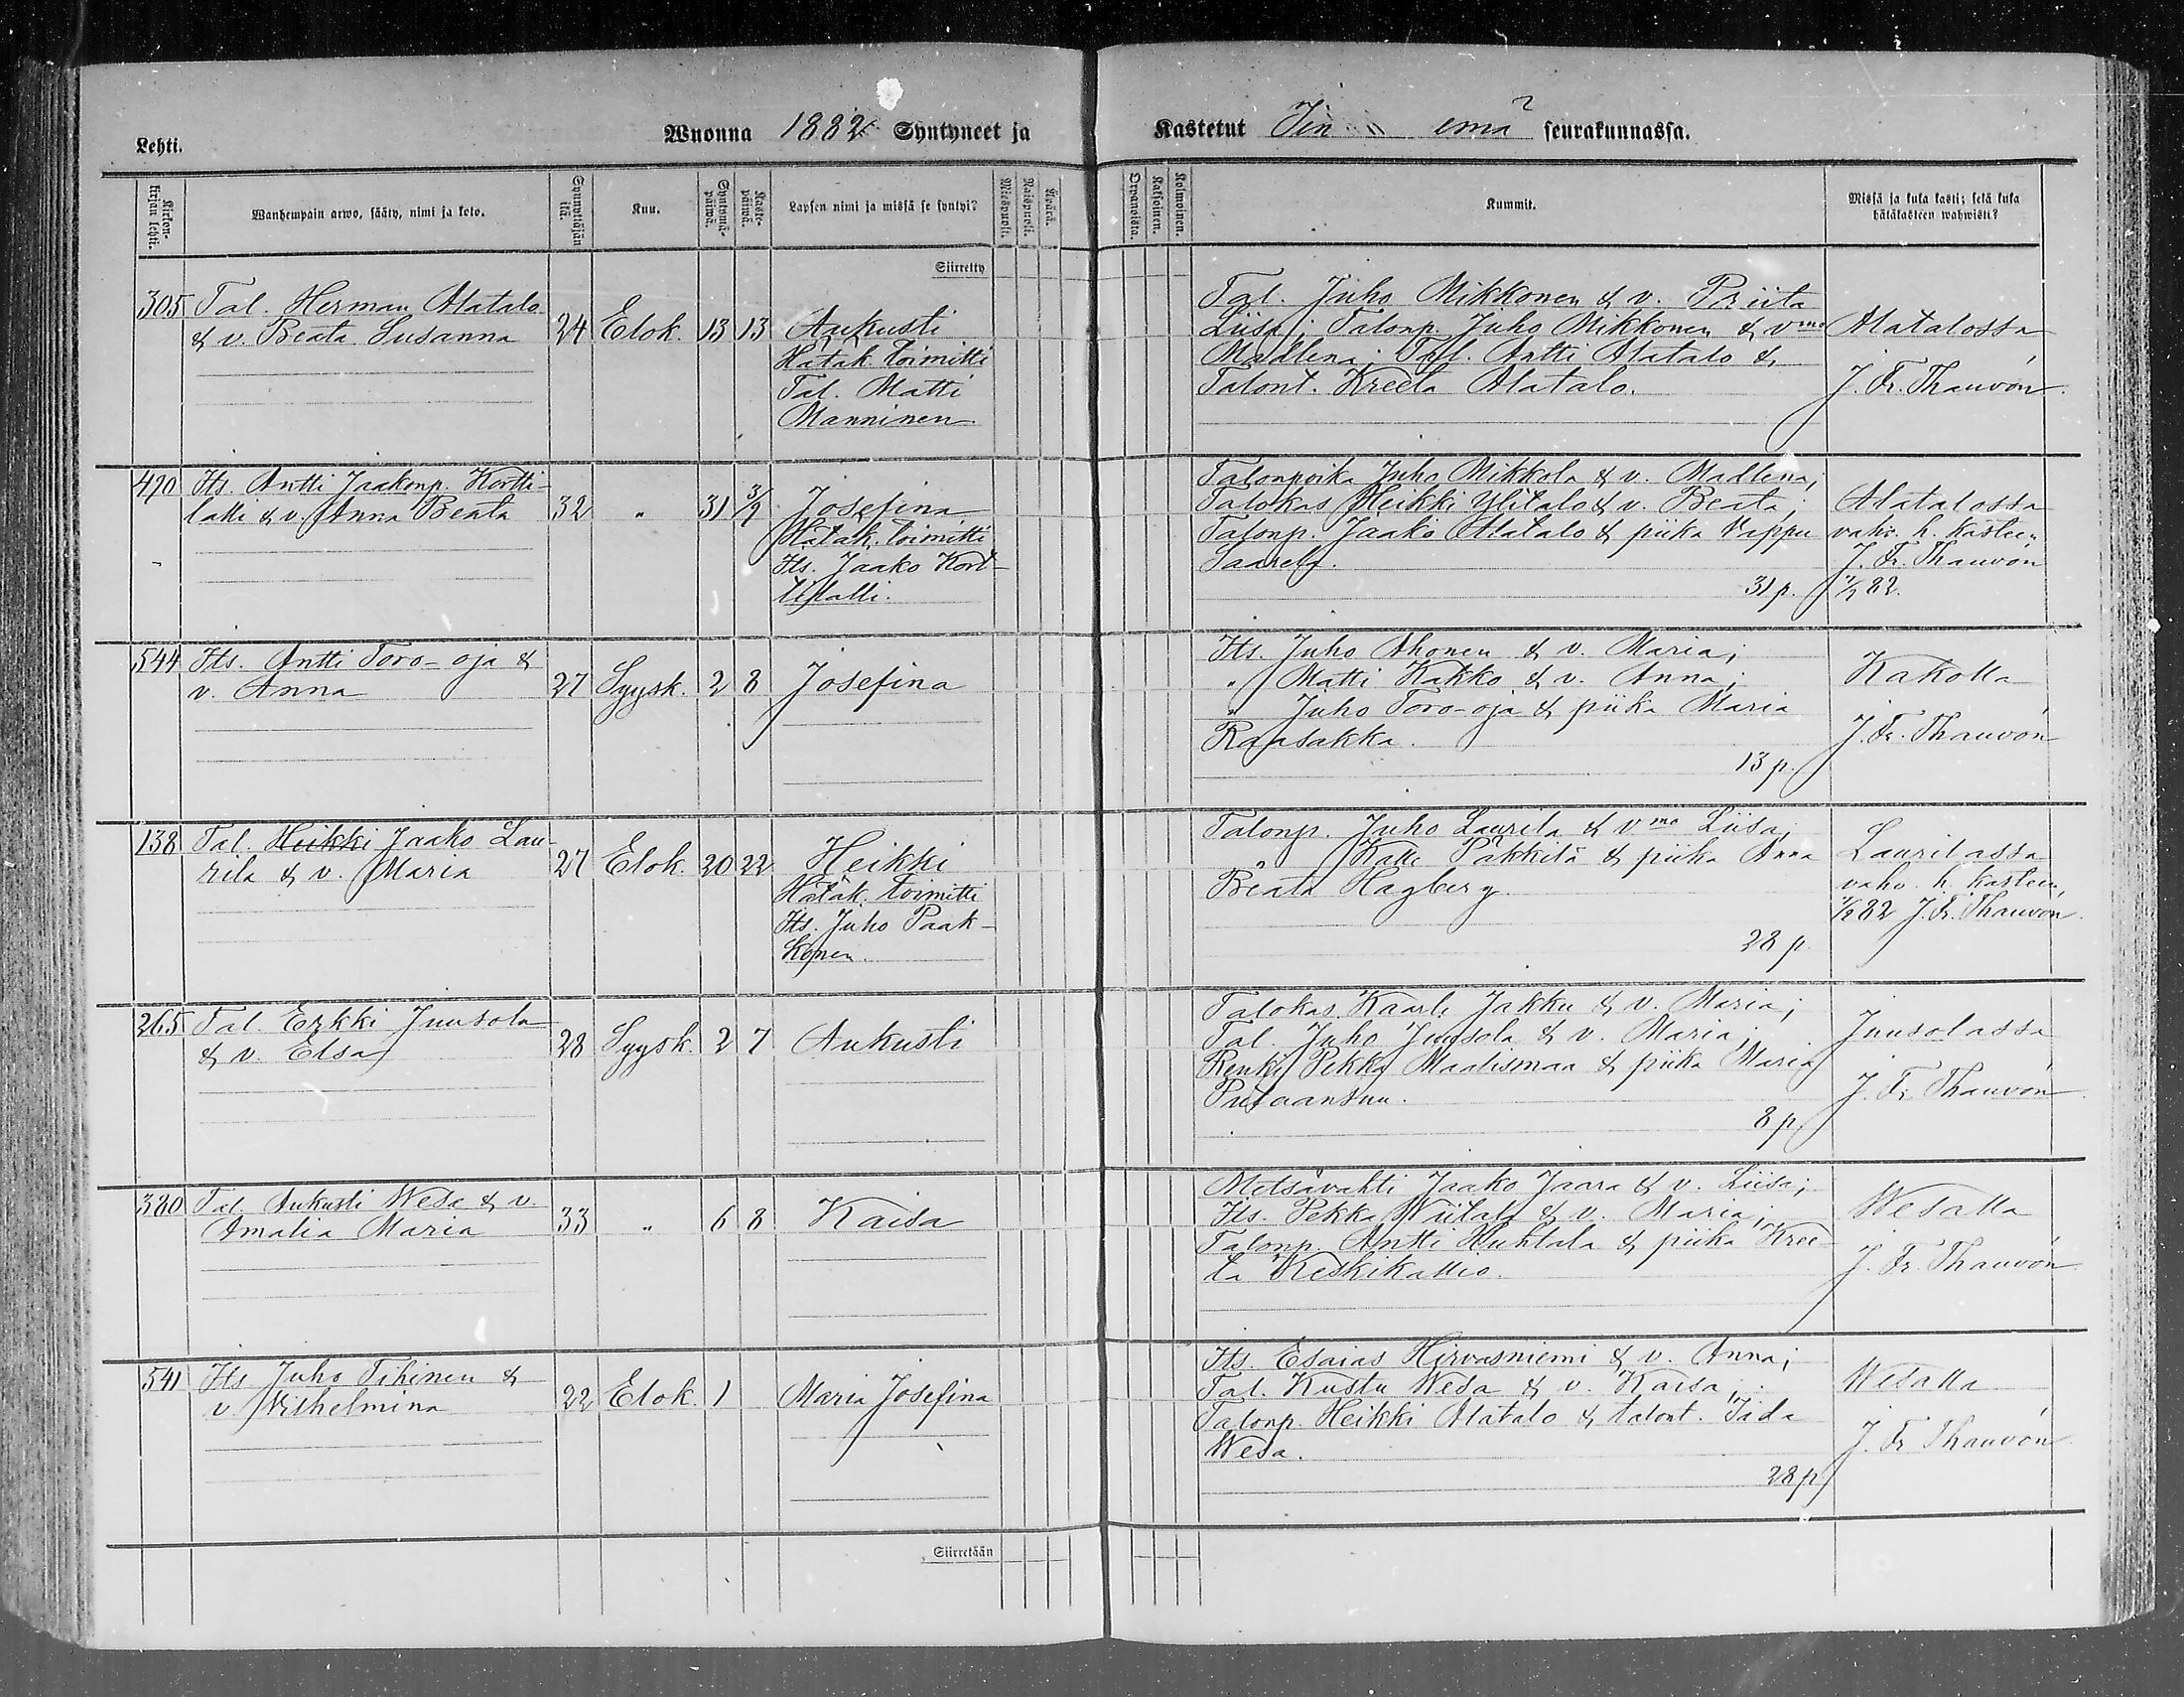 Lehti.
Wuonna 1882 Syntyneet ja
Kastetut Iin emä seurakunnassa.
Kirkonkirjan lehti.
Wanhempain arwo, sääty, nimi ja koto.
Synnyttäjän ikä.
Kuu.
Syntymäpäiwä.
Kastepäiwä.
Lapsen nimi ja missä se syntyi?
Miespuoli.
Naispuoli.
Kummit.
Missä ja kuka kasti; sekä kuka
hätäkasteen wahwisti?
Siirretty
305 Tal. Herman Alatalo
& v. Beata Susanna 24 Elok. 13 13 Aukusti
Hätäk. toimitti
Tal. Matti
Manninen.
Tal. Juho Mikkonen & v. Priita
Liisa; Talonp. Juho Mikkonen & vmo
Madlena; Tal. Antti Alatalo &
Talont. Kreeta Alatalo.
Alatalossa
J. Fr. Thauvón.
490 Its. Antti Jaakonp. Kortti-
lalli & v. Anna Beata 32 " 31 3/9 Josefina
Hätäk. toimitti
Its. Jaako Kort-
tilalli.
Talonpoika Juho Mikkola & v. Madlena;
Talokas Heikki Ylitalo & v. Beata;
Talonp. Jaako Alatalo & piika Vappu
Saarela.
31 p.
Alatalossa
vahv. h. kasteen
J. Fr. Thauvón
82.
544 Its. Antti Toro-oja &
v. Anna 27 Syysk. 2 8 Josefina
Its. Juho Ahonen & v. Maria;
" Matti Kakko & v. Anna;
" Juho Toro-oja & piika Maria
Raasakka.
13 p.
Kakolla
J. Fr. Thauvón
138 Tal. Heikki Jaako Lau-
rila & v. Maria 27 Elok. 20 22 Heikki
Hätäk. toimitti
Its. Juho Paak-
konen.
Talonp. Juho Laurila & vmo Liisa;
" Kalle Pakkila & piika Anna
Beata Hagberg.
28 p.
Laurilassa
vahv. h. kasteen,
82 J. Fr. Thauvón.
265 Tal. Erkki Juusola
& v. Elsa 28 Syysk. 2 7 Aukusti
Talokas Kaarle Jakku & v. Maria;
Tal. Juho Juusola & v. Maria;
Renki Pekka Maalismaa & piika Maria
Putaansuu.
8 p.
Juusolassa
J. Fr. Thauvón.
380 Tal. Aukusti Wesa & v.
Amalia Maria 33 " 6 8 Kaisa
Metsävahti Jaako Jaara & v. Liisa;
Its. Pekka Wiitala & v. Maria;
Talonp. Antti Huhtala & piika Kree-
ta Keskikallio.
Wesalla
J. Fr. Thauvón
541 Its. Juho Tihinen &
v. Wilhelmina 22 Elok. 1 Maria Josefina
Its. Esaias Hirvasniemi & v. Anna;
Tal. Kustu Wesa & v. Kaisa;
Talonp. Heikki Alatalo & talont. Iida
Wesa.
28 p
Wesalla
J. Fr Thauvón
Siirretään